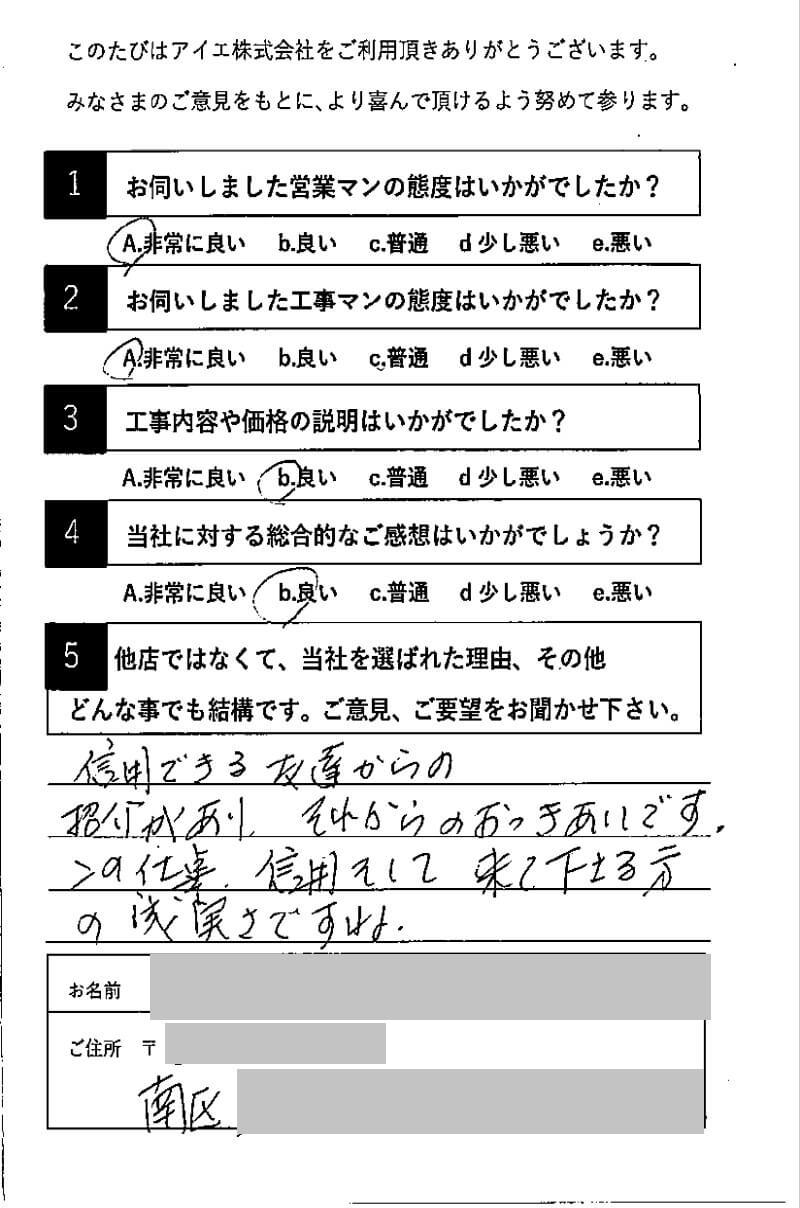 このたびはアイエ株式会社をご利用頂きありがとうございます。
みなさまのご意見をもとに、より喜んで頂けるよう努めて参ります。
1 お伺いしました営業マンの態度はいかがでしたか？
A.非常に良い b.良い c.普通 d 少し悪い e.悪い
2 お伺いしました工事マンの態度はいかがでしたか？
A.非常に良い b.良い c.普通 d 少し悪い e.悪い
3 工事内容や価格の説明はいかがでしたか？
A.非常に良い b.良い c.普通 d 少し悪い e.悪い
4 当社に対する総合的なご感想はいかがでしょうか？
A.非常に良い b.良い c.普通 d 少し悪い e.悪い
5 他店ではなくて、当社を選ばれた理由、その他
どんな事でも結構です。ご意見、ご要望をお聞かせ下さい。
信用できる友達からの
紹介があり、それからのおつきあいです。
この仕事、信用そして来て下さる方
の誠実さですね。
お名前
ご住所 〒
南区